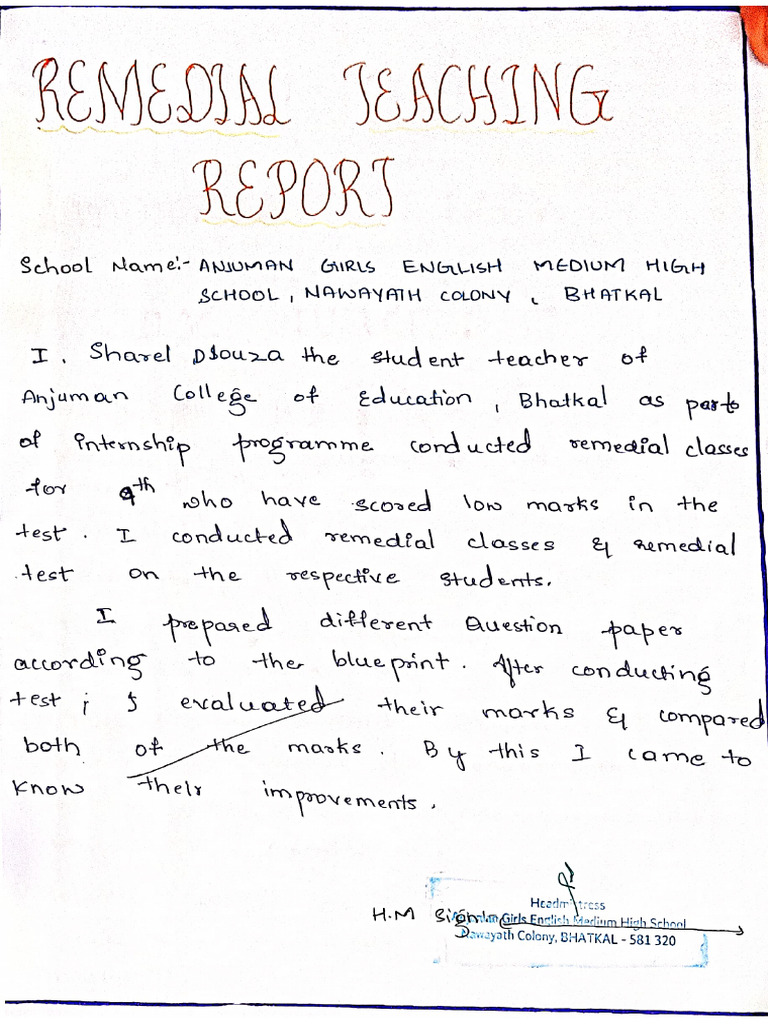 REMEDIAL TEACHING
REPORT
School Name:- ANJUMAN GIRLS ENGLISH MEDIUM HIGH
SCHOOL, NAWAYATH COLONY, BHATKAL
I, Sharel Dsouza the student teacher of
Anjuman College of Education, Bhatkal as part
of internship programme conducted remedial classes
for 9th who have scored low marks in the
test. I conducted remedial classes & remedial
test on the respective students.
I prepared different Question paper
according to the blueprint. After conducting
test; I evaluated their marks & compared
both of the marks. By this I came to
know their improvements.
Headmistress
H.M Sign Girls English Medium High School
Nawayath Colony, BHATKAL - 581 320